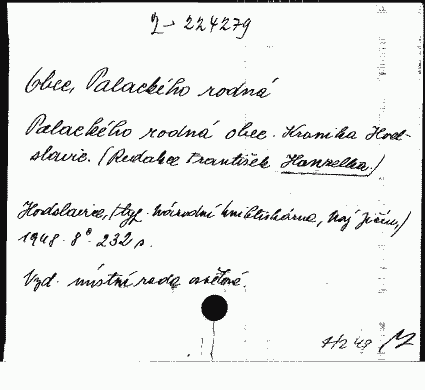 2-224279
Obec, Palackého rodná
Palackého rodná obec. Kronika Hod-
slavic. (Redakce František Hanzelka.)
Hodslavice, (typ. Národní knihtiskárna, Nový Jičín,)
1948. 8°. 232 s.
Vyd. místní rada osvětová.